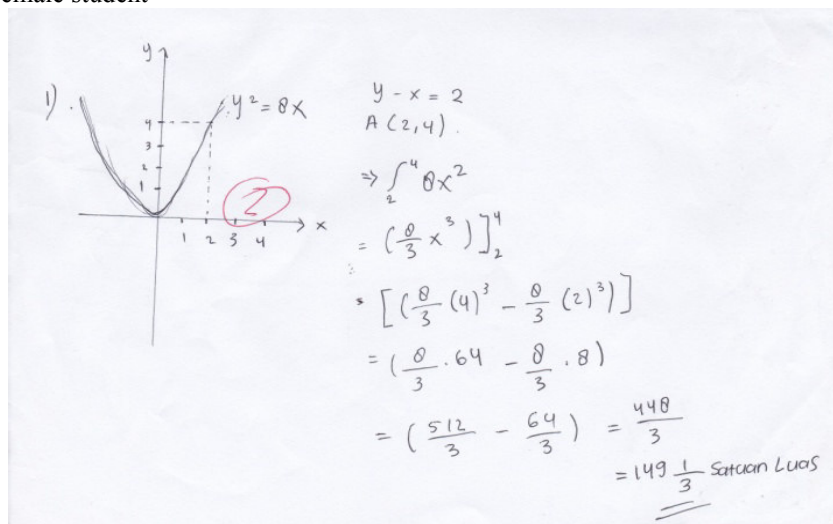 emale student
1).
y
y² = 8x
4
3
2
1
1 2 3 4
x
2
y - x = 2
A (2,4).
⇒ ∫₂⁴ 8x²
= (8/3 x³)]₂⁴
[(8/3 (4)³ - 8/3 (2)³)]
= (8/3 . 64 - 8/3 . 8)
= (512/3 - 64/3) = 448/3
= 149 1/3 Satuan Luas